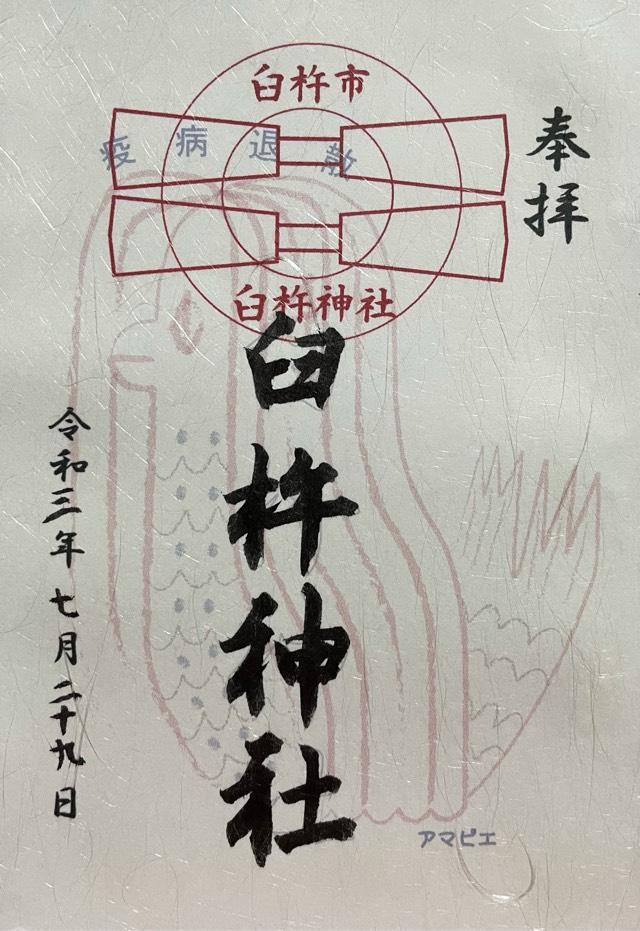 奉拝
臼杵市
疫病退散
臼杵神社
臼杵神社
令和三年七月二十九日
アマビエ